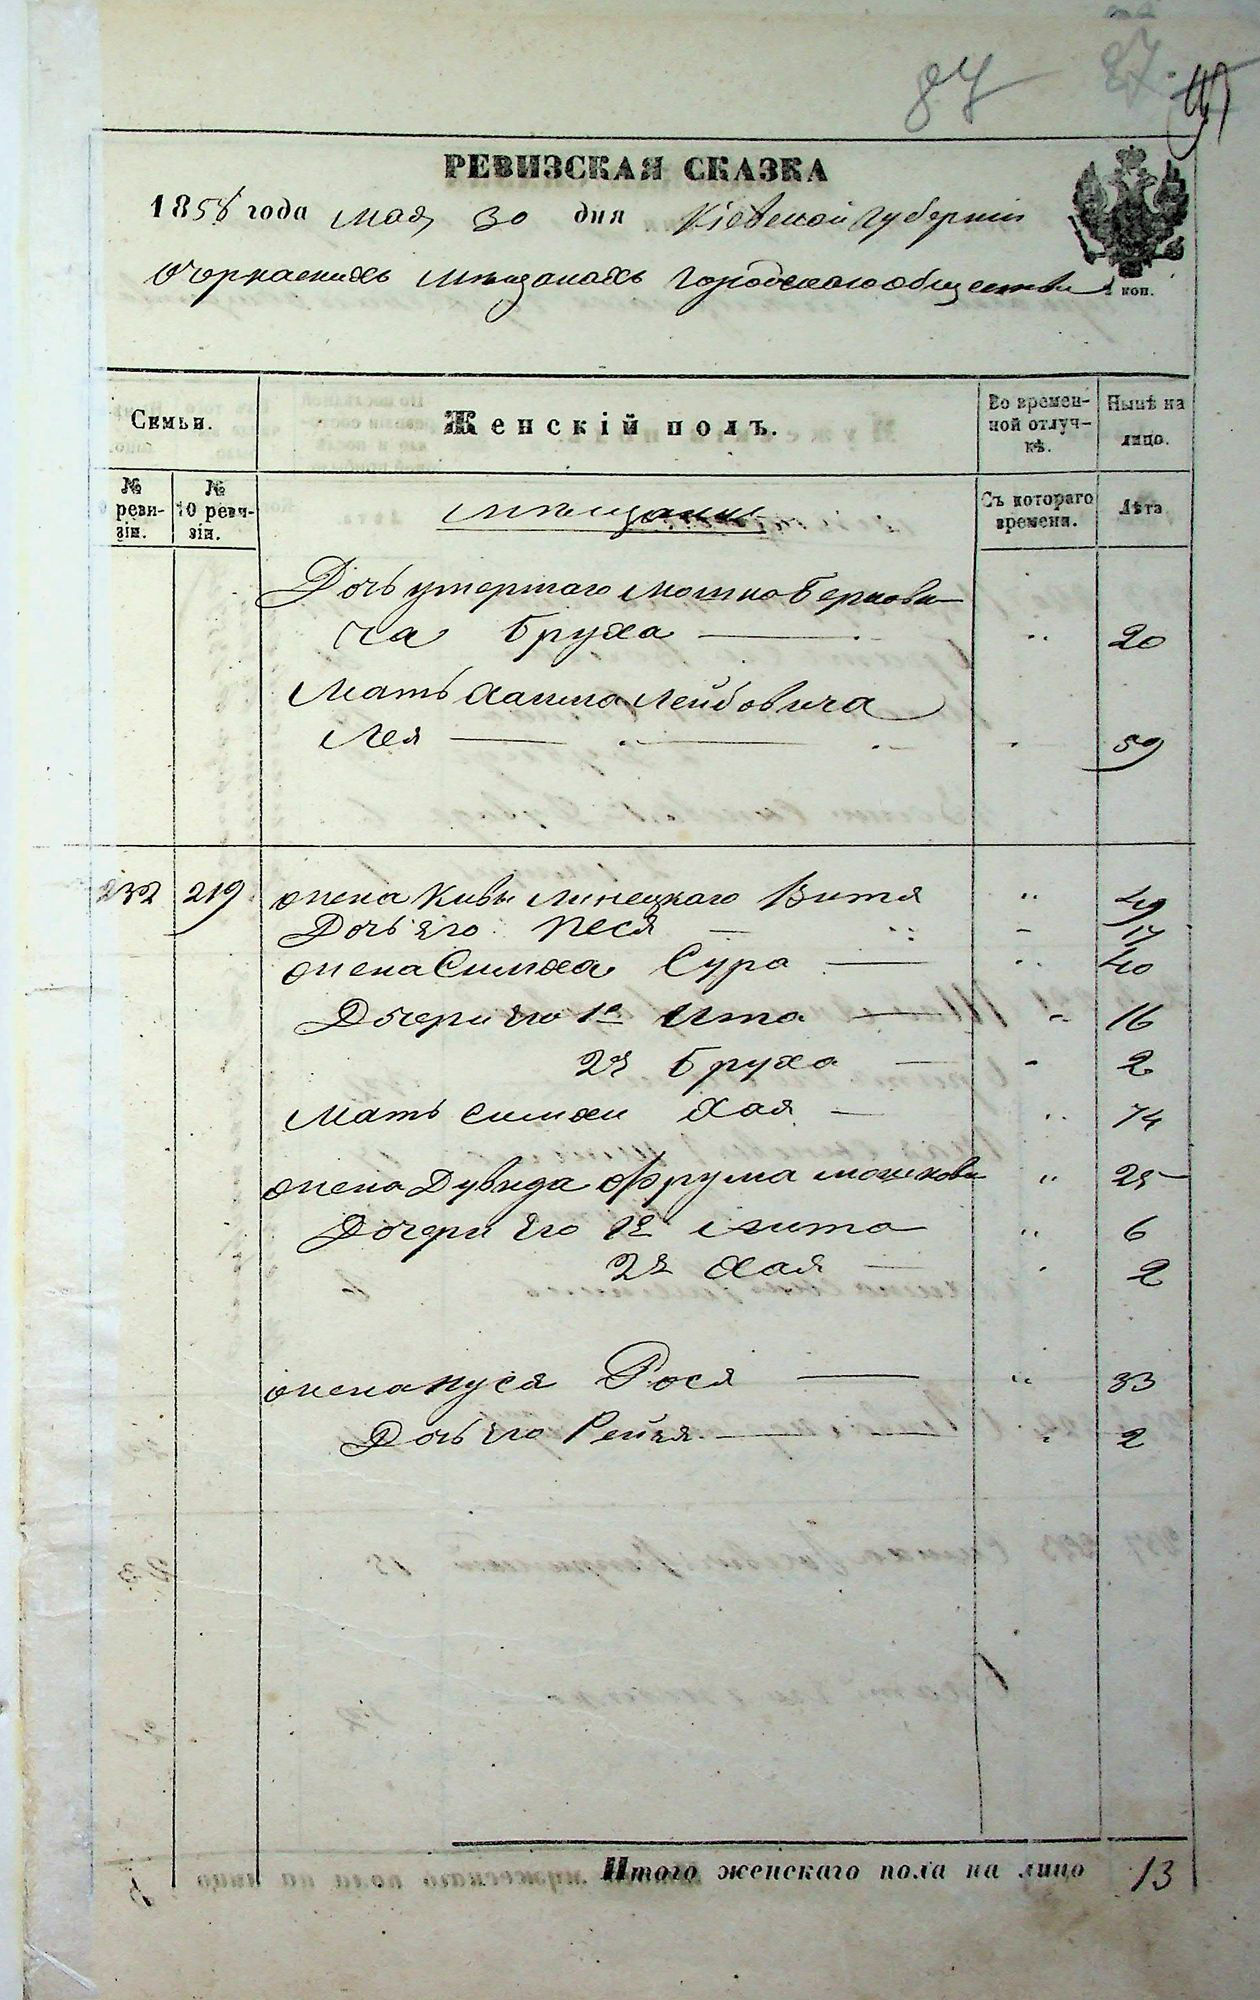 87 27.
РЕВИЗСКАЯ СКАЗКА
1858 года мая 30 дня Кіевской губерніи
о черкаскихъ мѣщанахъ городского общества
коп.
Семьи.
Женскій полъ.
Во времен-
ной отлуч-
кѣ.
Нынѣ на
лицо.
№
реви-
зіи.
№
10 реви-
зіи.
мѣщане
Съ котораго
времени.
Лѣта
Дочь умершаго Мошко Беркови
ча Бруха — " 20
Мать Хаима Лейбовича
Лея — " 59
232 219 жена Кивы Линецкаго Витя " 49
Дочь его Песя — " 17
жена Симха Сура — " 40
Дочери его 1я Ита — " 16
2я Бруха — " 2
Мать Симхи Хая — " 74
жена Дувида Фрума Мошкова " 25
Дочери его 1я Гита " 6
2я Хая — " 2
жена Нуся Рося — " 33
Дочь его Рейзя — " 2
Итого женскаго пола на лицо 13